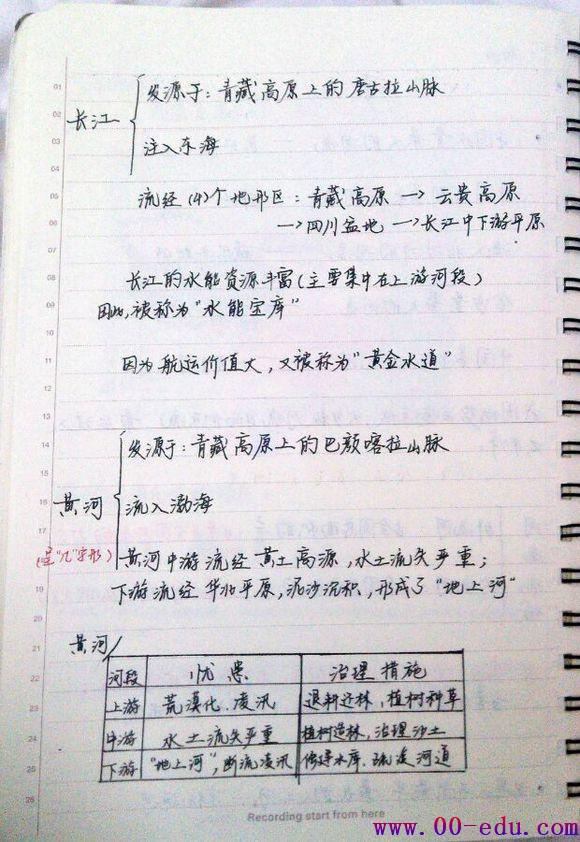 发源于：青藏高原上的唐古拉山脉
长江
注入东海
流经(4)个地形区：青藏高原→云贵高原
→四川盆地→长江中下游平原
长江的水能资源丰富(主要集中在上游河段)
因此,被称为"水能宝库"
因为航运价值大,又被称为"黄金水道"
发源于：青藏高原上的巴颜喀拉山脉
黄河
流入渤海
(呈"几"字形)
黄河中游流经黄土高源,水土流失严重；
下游流经华北平原,泥沙沉积,形成了"地上河"
黄河
河段 忧患 治理措施
上游 荒漠化、凌汛 退耕还林,植树种草
中游 水土流失严重 植树造林,治理沙土
下游 "地上河",断流凌汛 修建水库、疏浚河道
01
02
03
04
05
06
07
08
09
10
11
12
13
14
15
16
17
18
19
20
21
22
23
24
25
26
Recording start from here
www.00-edu.com